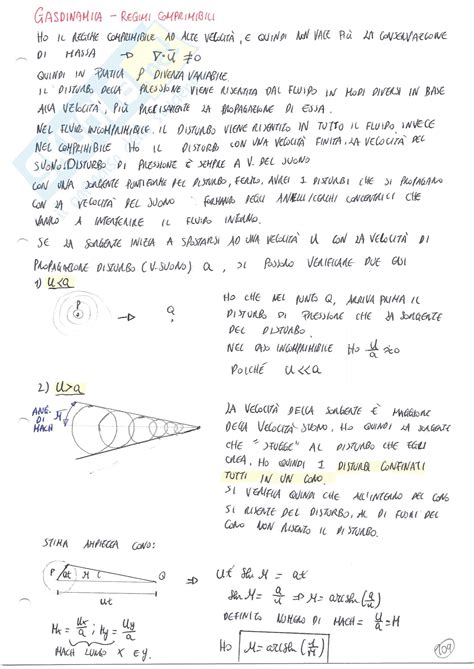 GASDINAMICA - REGIMI COMPRIMIBILI
HO IL REGIME COMPRIMIBILE AD ALTE VELOCITÀ, E QUINDI NON VALE PIÙ LA CONSERVAZIONE
DI MASSA → ∇·U ≠ 0
QUINDI IN PRATICA ρ DIVENTA VARIABILE
IL DISTURBO DELLA PRESSIONE VIENE RISENTITA DAL FLUIDO IN MODI DIVERSI IN BASE
ALLA VELOCITÀ, PIÙ PRECISAMENTE LA PROPAGAZIONE DI ESSA.
NEL FLUIDO INCOMPRIMIBILE IL DISTURBO VIENE RISENTITO IN TUTTO IL FLUIDO INVECE
NEL COMPRIMIBILE HO IL DISTURBO CON UNA VELOCITÀ FINITA, LA VELOCITÀ DEL
SUONO. DISTURBO DI PRESSIONE È SEMPRE A V. DEL SUONO
CON UNA SORGENTE PUNTIFORME DEL DISTURBO, FERMO, AVREI I DISTURBI CHE SI PROPAGANO
CON LA VELOCITÀ DEL SUONO FORMANDO DEGLI ANELLI/CERCHI CONCENTRICI CHE
VANNO A INTERFERIRE IL FLUIDO INTORNO.
SE LA SORGENTE INIZIA A SPOSTARSI AD UNA VELOCITÀ U CON LA VELOCITÀ DI
PROPAGAZIONE DISTURBO (V. SUONO) a, SI POSSONO VERIFICARE DUE CASI
1) U<a
P
Q
HO CHE NEL PUNTO Q, ARRIVA PRIMA IL
DISTURBO DI PRESSIONE CHE LA SORGENTE
DEL DISTURBO.
NEL CASO INCOMPRIMIBILE HO U/a ≈ 0
POICHÉ U<<a
2) U>a
ANG. DI MACH
M
LA VELOCITÀ DELLA SORGENTE È MAGGIORE
DELLA VELOCITÀ SUONO, HO QUINDI LA SORGENTE
CHE "SFUGGE" AL DISTURBO CHE EGLI
CREA, HO QUINDI I DISTURBI CONFINATI
TUTTI IN UN CONO.
SI VERIFICA QUINDI CHE ALL'INTERNO DEL CONO
SI RISENTE DEL DISTURBO, AL DI FUORI DEL
CONO NON RISENTO IL DISTURBO.
STIMA AMPIEZZA CONO:
P at M Q
Ut
⇒ Ut sin M = at
sin M = a/U ⇒ M = arcsin (a/U)
DEFINITO NUMERO DI MACH = U/a = M
HO M = arcsin (1/M)
Mx = Ux/a ; My = Uy/a
MACH LUNGO X E Y.
109